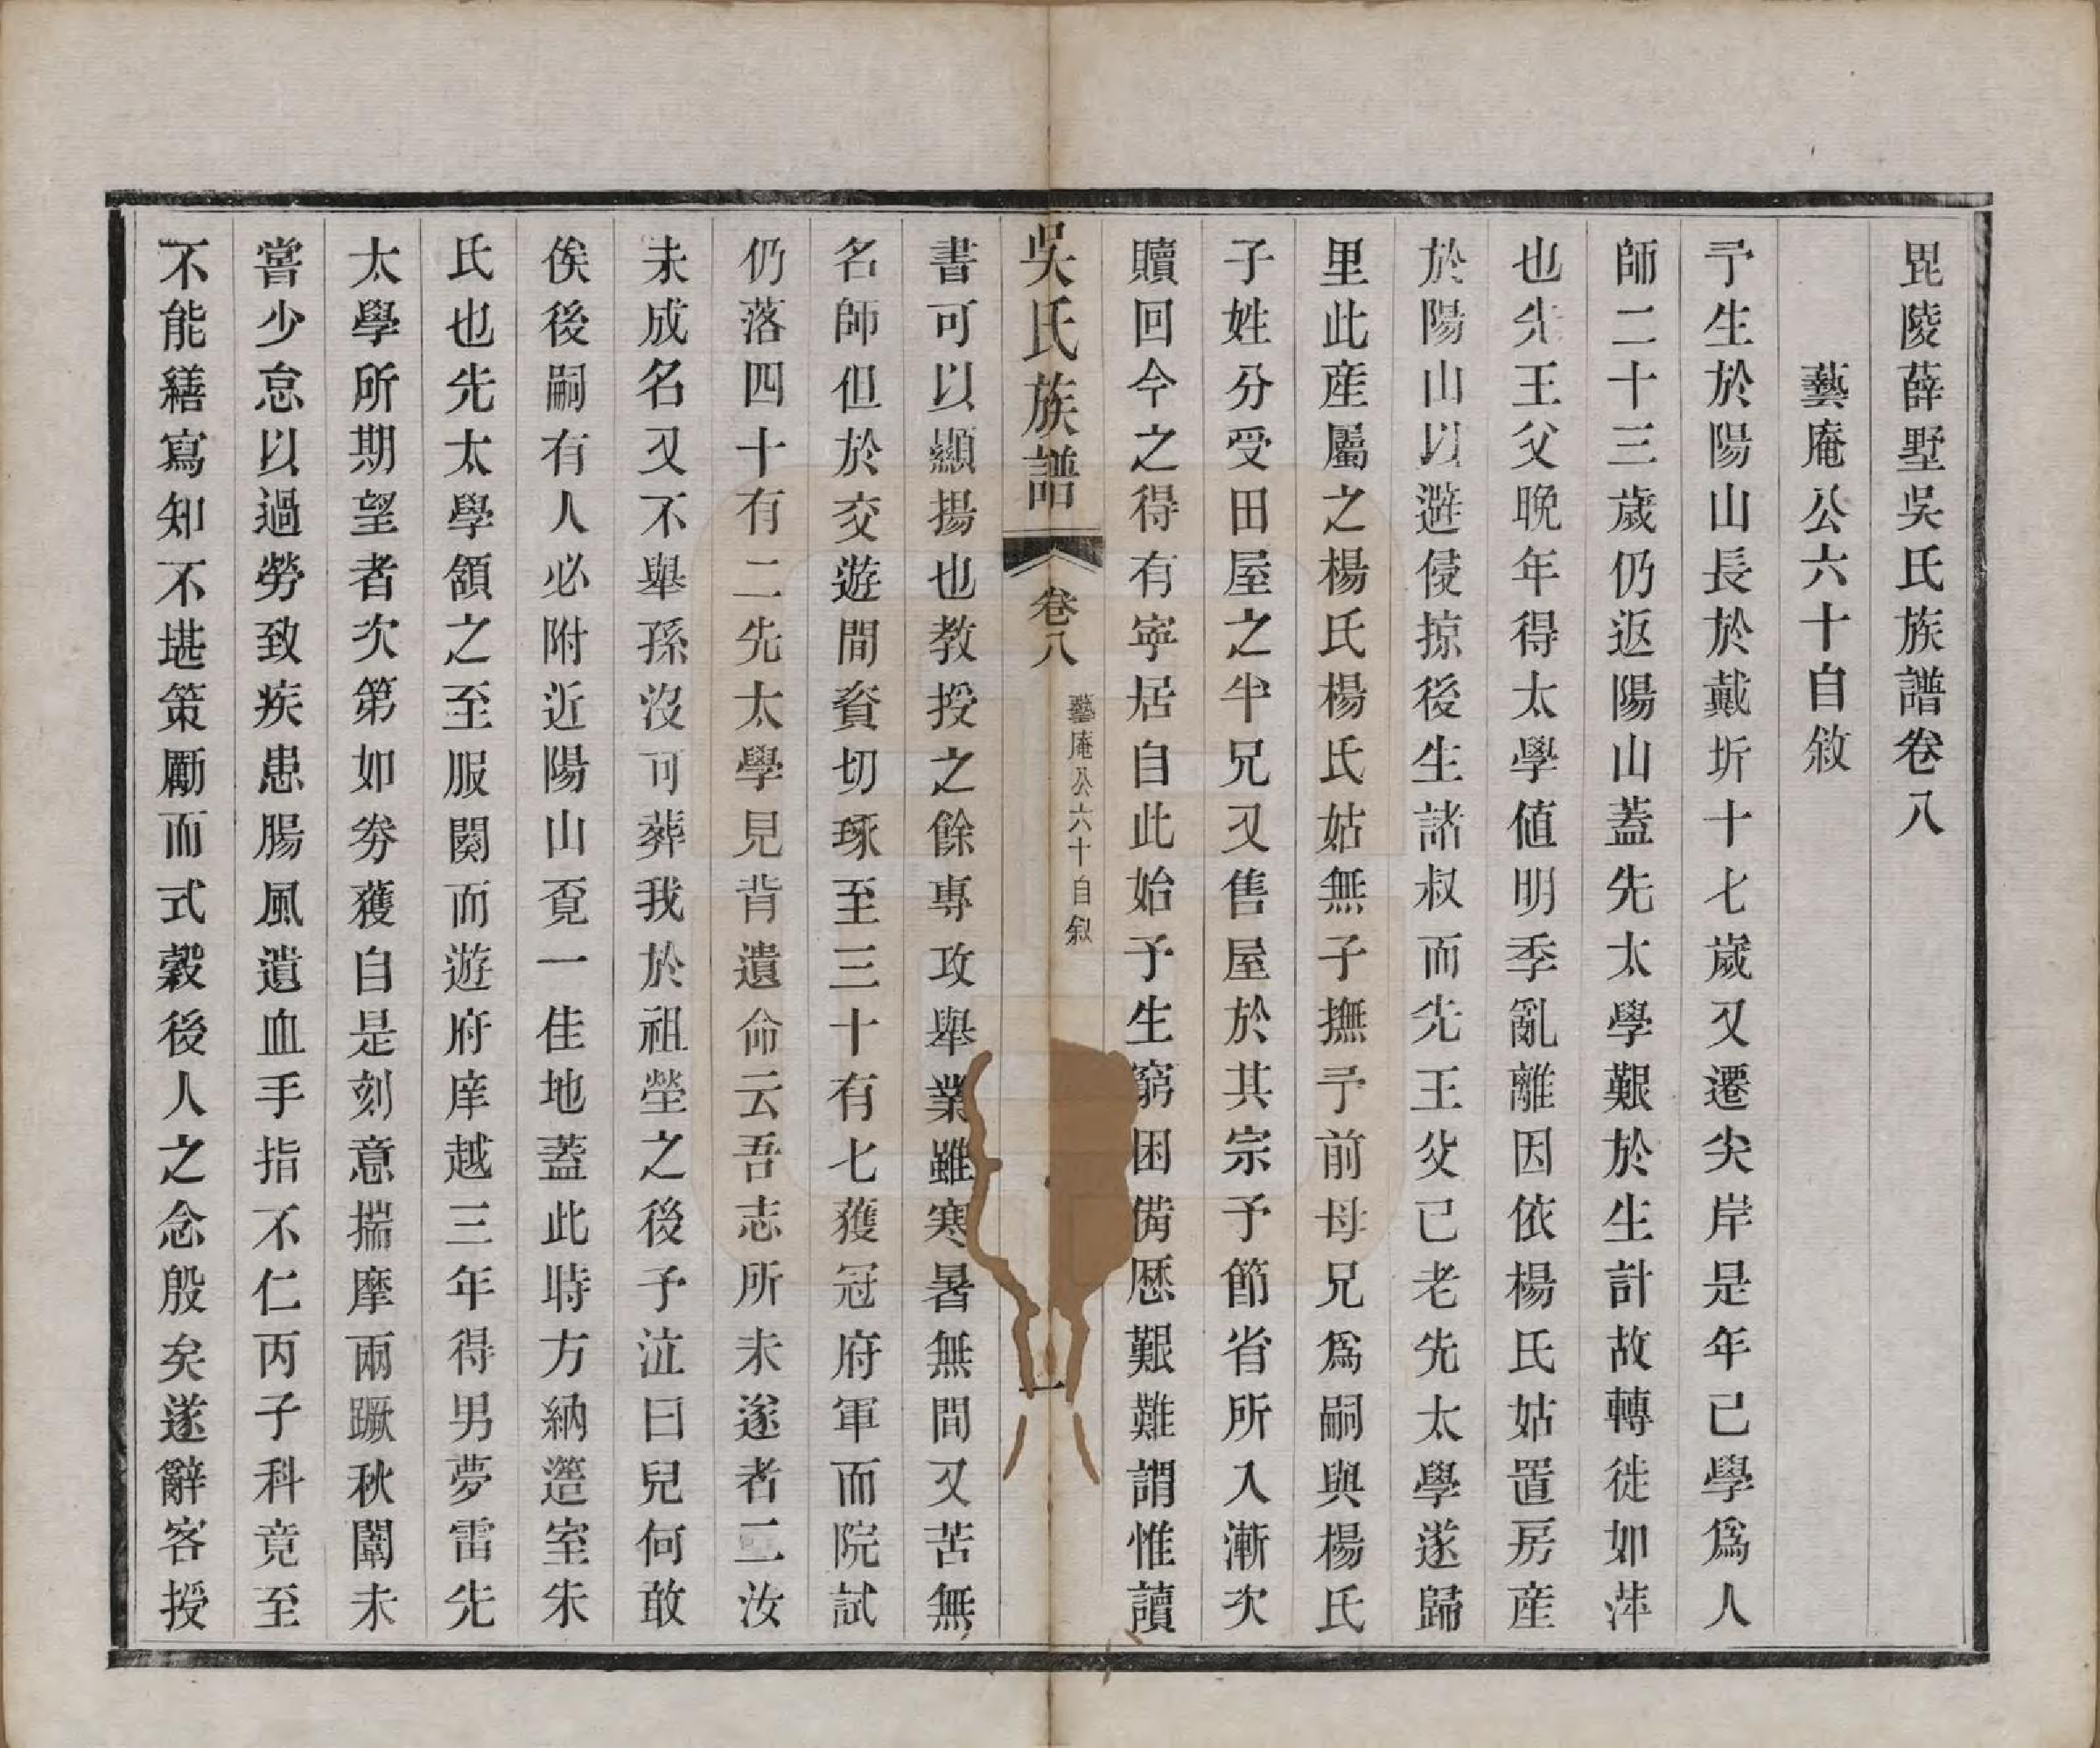 毘陵薛墅吳氏族譜卷八
藝庵公六十自敘
予生於陽山長於戴圻十七歲又遷尖岸是年已學爲人
師二十三歲仍返陽山蓋先太學艱於生計故轉徙如萍
也先王父晚年得太學值明季亂離因依楊氏姑置房產
於陽山以避侵掠後生諸叔而先王父已老先太學遂歸
里此産屬之楊氏楊氏姑無子撫予前母兄爲嗣與楊氏
子姓分受田屋之半兄又售屋於其宗予節省所入漸次
贖回今之得有寧居自此始予生窮困備歷艱難謂惟讀
吳氏族譜
卷八
藝庵公六十自敘
一
書可以顯揚也教授之餘專攻舉業雖寒暑無間又苦無
名師但於交遊間資切琢至三十有七獲冠府軍而院試
仍落四十有二先太學見背遺命云吾志所未遂者二汝
未成名又不舉孫沒可葬我於祖塋之後予泣曰兒何敢
俟後嗣有人必附近陽山覔一佳地蓋此時方納簉室朱
氏也先太學頷之至服闋而遊府庠越三年得男夢雷先
太學所期望者次第如劵獲自是刻意揣摩兩蹶秋闈未
嘗少怠以過勞致疾患腸風遺血手指不仁丙子科竟至
不能繕寫知不堪策勵而式榖後人之念殷矣遂辭客授